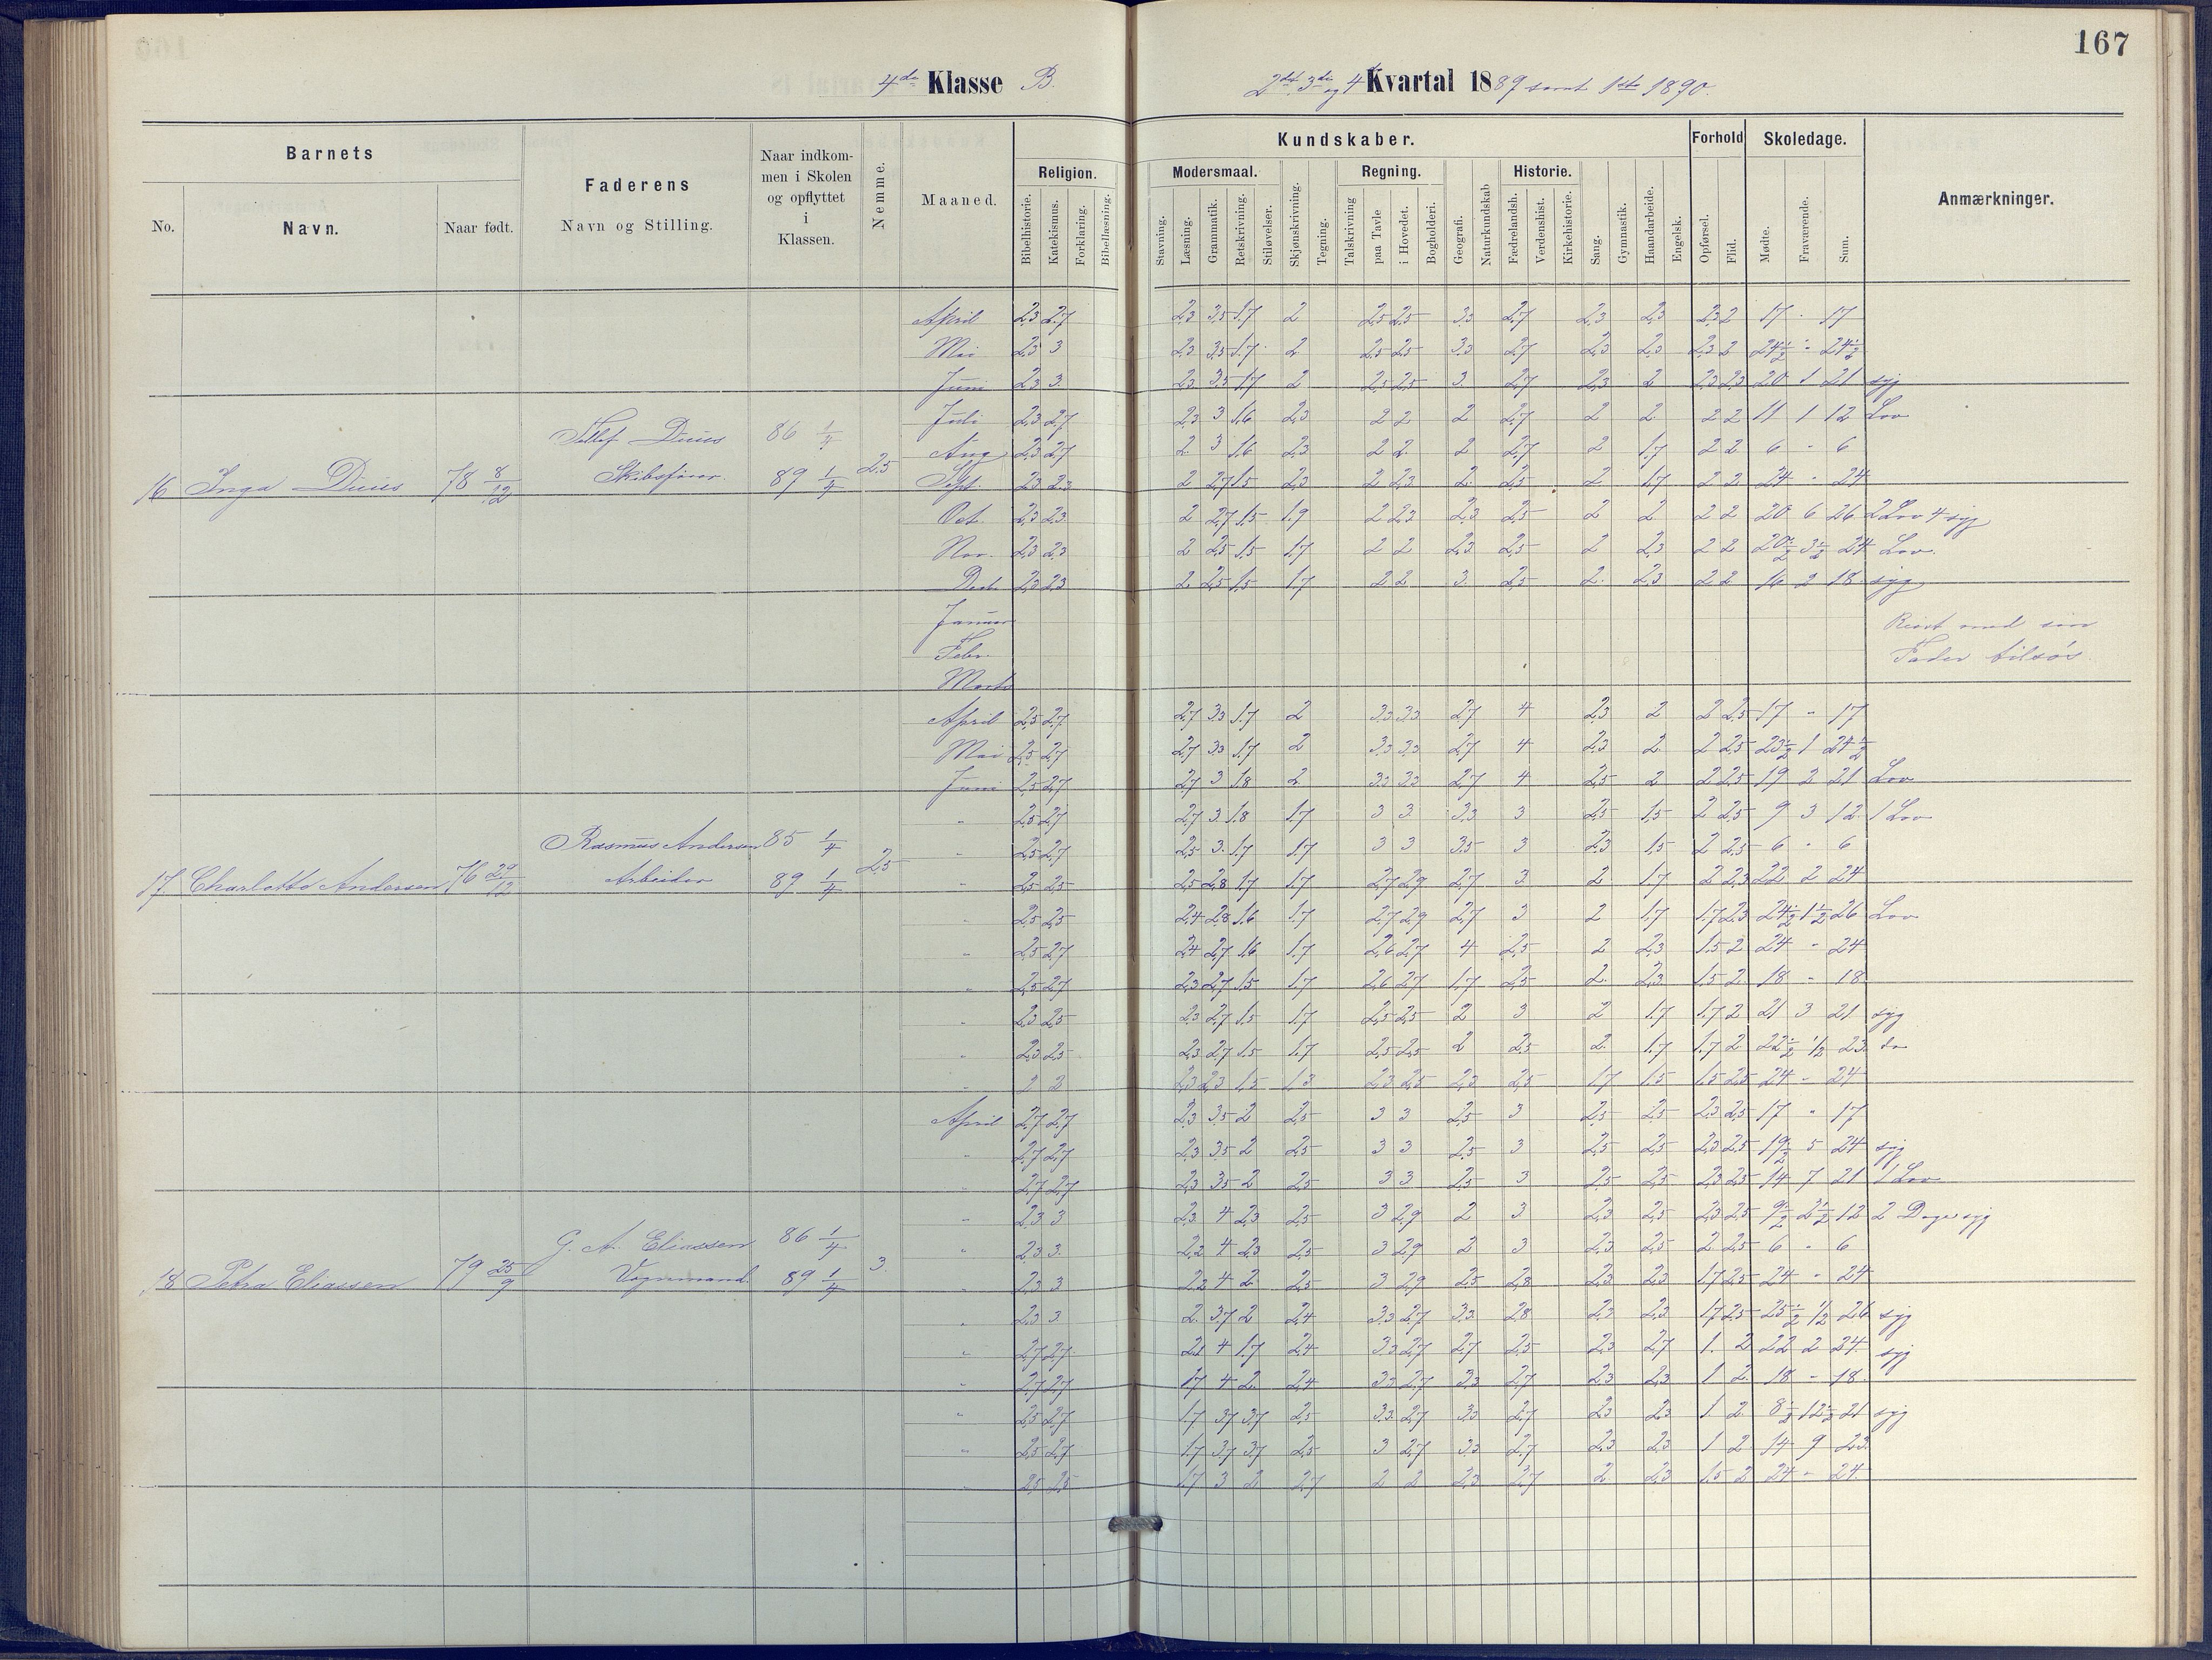 167
4de Klasse B.
2det 3die og 4de Kvartal 1889 samt 1ste 1890.
Barnets
No.
Navn.
Naar født.
Faderens
Navn og Stilling.
Naar indkom-
men i Skolen
og opflyttet
i
Klassen.
Nemme.
Maaned.
Kundskaber.
Religion.
Bibelhistorie.
Katekismus.
Forklaring.
Bibellæsning.
Modersmaal.
Stavning.
Læsning.
Grammatik.
Retskrivning.
Stiløvelser.
Skjønskrivning.
Tegning.
Regning.
Talskrivning
paa Tavle
i Hovedet.
Bogholderi.
Geografi.
Naturkundskab
Historie.
Fædrelandsh.
Verdenshist.
Kirkehistorie.
Sang.
Gymnastik.
Haandarbeide.
Engelsk.
Forhold
Opførsel.
Flid.
Skoledage.
Mødte.
Fraværende.
Sum.
Anmærkninger.
April 2,3 2,7 2,3 3,5 1,7 2 2,5 2,5 3,3 2,7 2,3 2,3 2,3 2 17 - 17
Mai 2,3 3 2,3 3,5 1,7 2 2,5 2,5 3,3 2,7 2,3 2,3 2,3 2 24½ - 24½
Juni 2,3 3 2,3 3,5 1,7 2 2,5 2,5 3 2,7 2,3 2 2,3 2,3 20 1 21 syg
Juli 2,3 2,7 2,3 3 1,6 2,3 2 2 2 2,7 2 2 2 2 11 1 12 Lov
Dues 86 1/4
Aug 2,3 2,7 2 3 1,6 2,3 2 2 2 2,7 2 1,7 2 2 6 - 6
16 Inga Dues 78 8/12 Skibsfører 89 1/4 2,5 Sept. 2,3 2,3 2 2,7 1,5 2,3 2 2,3 2 2,5 2 1,7 2 2 24 - 24
Oct. 2,3 2,3 2 2,7 1,5 1,9 2 2,3 2,3 2,5 2 2 2 2 20 6 26 2 Lov 4 syg
Nov. 2,3 2,3 2 2,5 1,5 1,7 2 2 2,3 2,5 2 2,3 2 2 20½ 3½ 24 Lov.
Decb. 2,3 2,3 2 2,5 1,5 1,7 2 2 3 2,5 2 2,3 2 2 16 2 18 syg
Januar Reist med sin
Febr. Fader tilsøs.
Marts
April 2,5 2,7 2,7 3,3 1,7 2 3,3 3,3 2,7 4 2,3 2 2 2,5 17 - 17
Mai 2,5 2,7 2,7 3,3 1,7 2 3,3 3,3 2,7 4 2,3 2 2 2,5 23½ 1 24½
Juni 2,5 2,7 2,7 3 1,8 2 3,3 3,3 2,7 4 2,5 2 2 2,5 19 2 21 Lov
" 2,5 2,7 2,7 3 1,8 1,7 3 3 3,3 3 2,5 1,5 2 2,5 9 3 12 1 Lov
Rasmus Andersen 85 1/4 " 2,5 2,7 2,5 3 1,7 1,7 3 3 3,5 3 2,3 1,5 2 2,5 6 - 6
17 Charlotte Andersen 76 29/12 Arbeider 89 1/4 2,5 " 2,5 2,5 2,5 2,8 1,7 1,7 2,7 2,9 2,7 3 2 1,7 2 2,3 22 2 24
" 2,5 2,5 2,4 2,8 1,6 1,7 2,7 2,9 2,7 3 2 1,7 1,7 2,3 24½ 1½ 26 Lov
" 2,5 2,7 2,4 2,7 1,6 1,7 2,6 2,7 4 2,5 2 2,3 1,5 2 24 - 24
" 2,5 2,7 2,3 2,7 1,5 1,7 2,6 2,7 1,7 2,5 2 2,3 1,5 2 18 - 18
" 2,3 2,5 2,3 2,7 1,5 1,7 2,5 2,5 2 3 2 1,7 1,7 2 21 3 21 syg
" 2,3 2,5 2,3 2,7 1,5 1,7 2,5 2,5 2 2,5 2 1,7 1,7 2 22½ ½ 23 do
" 2 2 2,3 2,3 1,5 1,3 2,3 2,5 2,3 2,5 1,7 1,5 1,5 2,5 24 - 24
April 2,7 2,7 2,3 3,5 2 2,5 3 3 2,5 3 2,5 2,5 2,3 2,5 17 " 17
" 2,7 2,7 2,3 3,5 2 2,5 3 3 2,5 3 2,5 2,5 2,3 2,5 19½ 5 24 syg
" 2,7 2,7 2,3 3,5 2 2,5 3 3 2,5 3 2,5 2,5 2,3 2,5 14 7 21 1 Lov
" 2,3 3 2,3 4 2,3 2,5 3 2,9 2 3 2,3 2,5 2,3 2,5 9½ 2½ 12 2 Dage syg
G. A. Eliassen 86 1/4 " 2,3 3 2,2 4 2,3 2,5 3 2,9 2 3 2,3 2,5 2 2,5 6 - 6
18 Petra Eliassen 79 25/9 Vognmand. 89 1/4 3. " 2,3 3 2,2 4 2 2,5 3 2,9 2,5 2,8 2,3 2,3 1,7 2,5 24 - 24
" 2,3 3 2 3,7 2 2,4 3,3 2,7 3,3 2,8 2,3 2,3 1,7 2,5 25½ ½ 26 syg
" 2,7 2,7 2,1 4 1,7 2,4 3,3 2,7 2,7 2,5 2,3 2,7 1 2 22 2 24 syg
" 2,7 2,7 1,7 4 2 2,4 3,3 2,7 3,3 2,7 2,3 2,3 1 2 18 - 18
" 2,5 2,7 1,7 3,7 3,7 2,5 3,3 2,7 3,3 2,7 2,3 2,3 1 2 8½ 12½ 21 syg
" 2,5 2,7 1,7 3,7 3,7 2,5 3 2,7 3,3 2,7 2,3 2,3 1 2 14 9 23
" 2,5 2,5 1,7 3 2 2,7 2 2 2,3 2,7 2 2,3 1,5 2 24 - 24